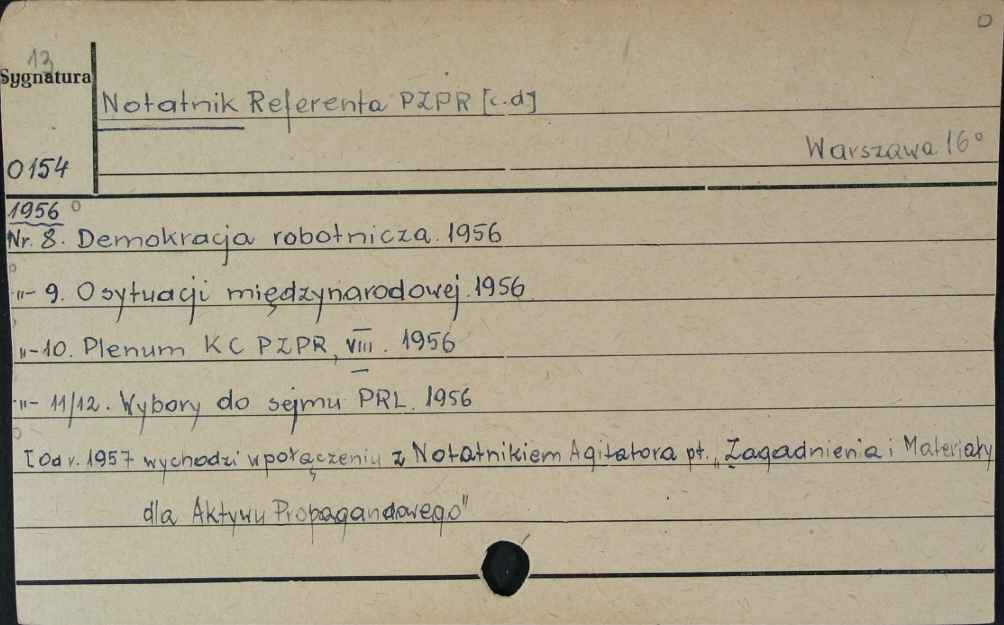 13
Sygnatura
Notatnik Referenta PZPR [c.d]
Warszawa 16°
0154
1956
Nr. 8. Demokracja robotnicza. 1956
-"- 9. O sytuacji międzynarodowej. 1956
"- 10. Plenum KC PZPR, VIII. 1956
-"- 11/12. Wybory do sejmu PRL. 1956
[Od r. 1957 wychodzi w połączeniu z Notatnikiem Agitatora pt. „Zagadnienia i Materiały
dla Aktywu Propagandowego"